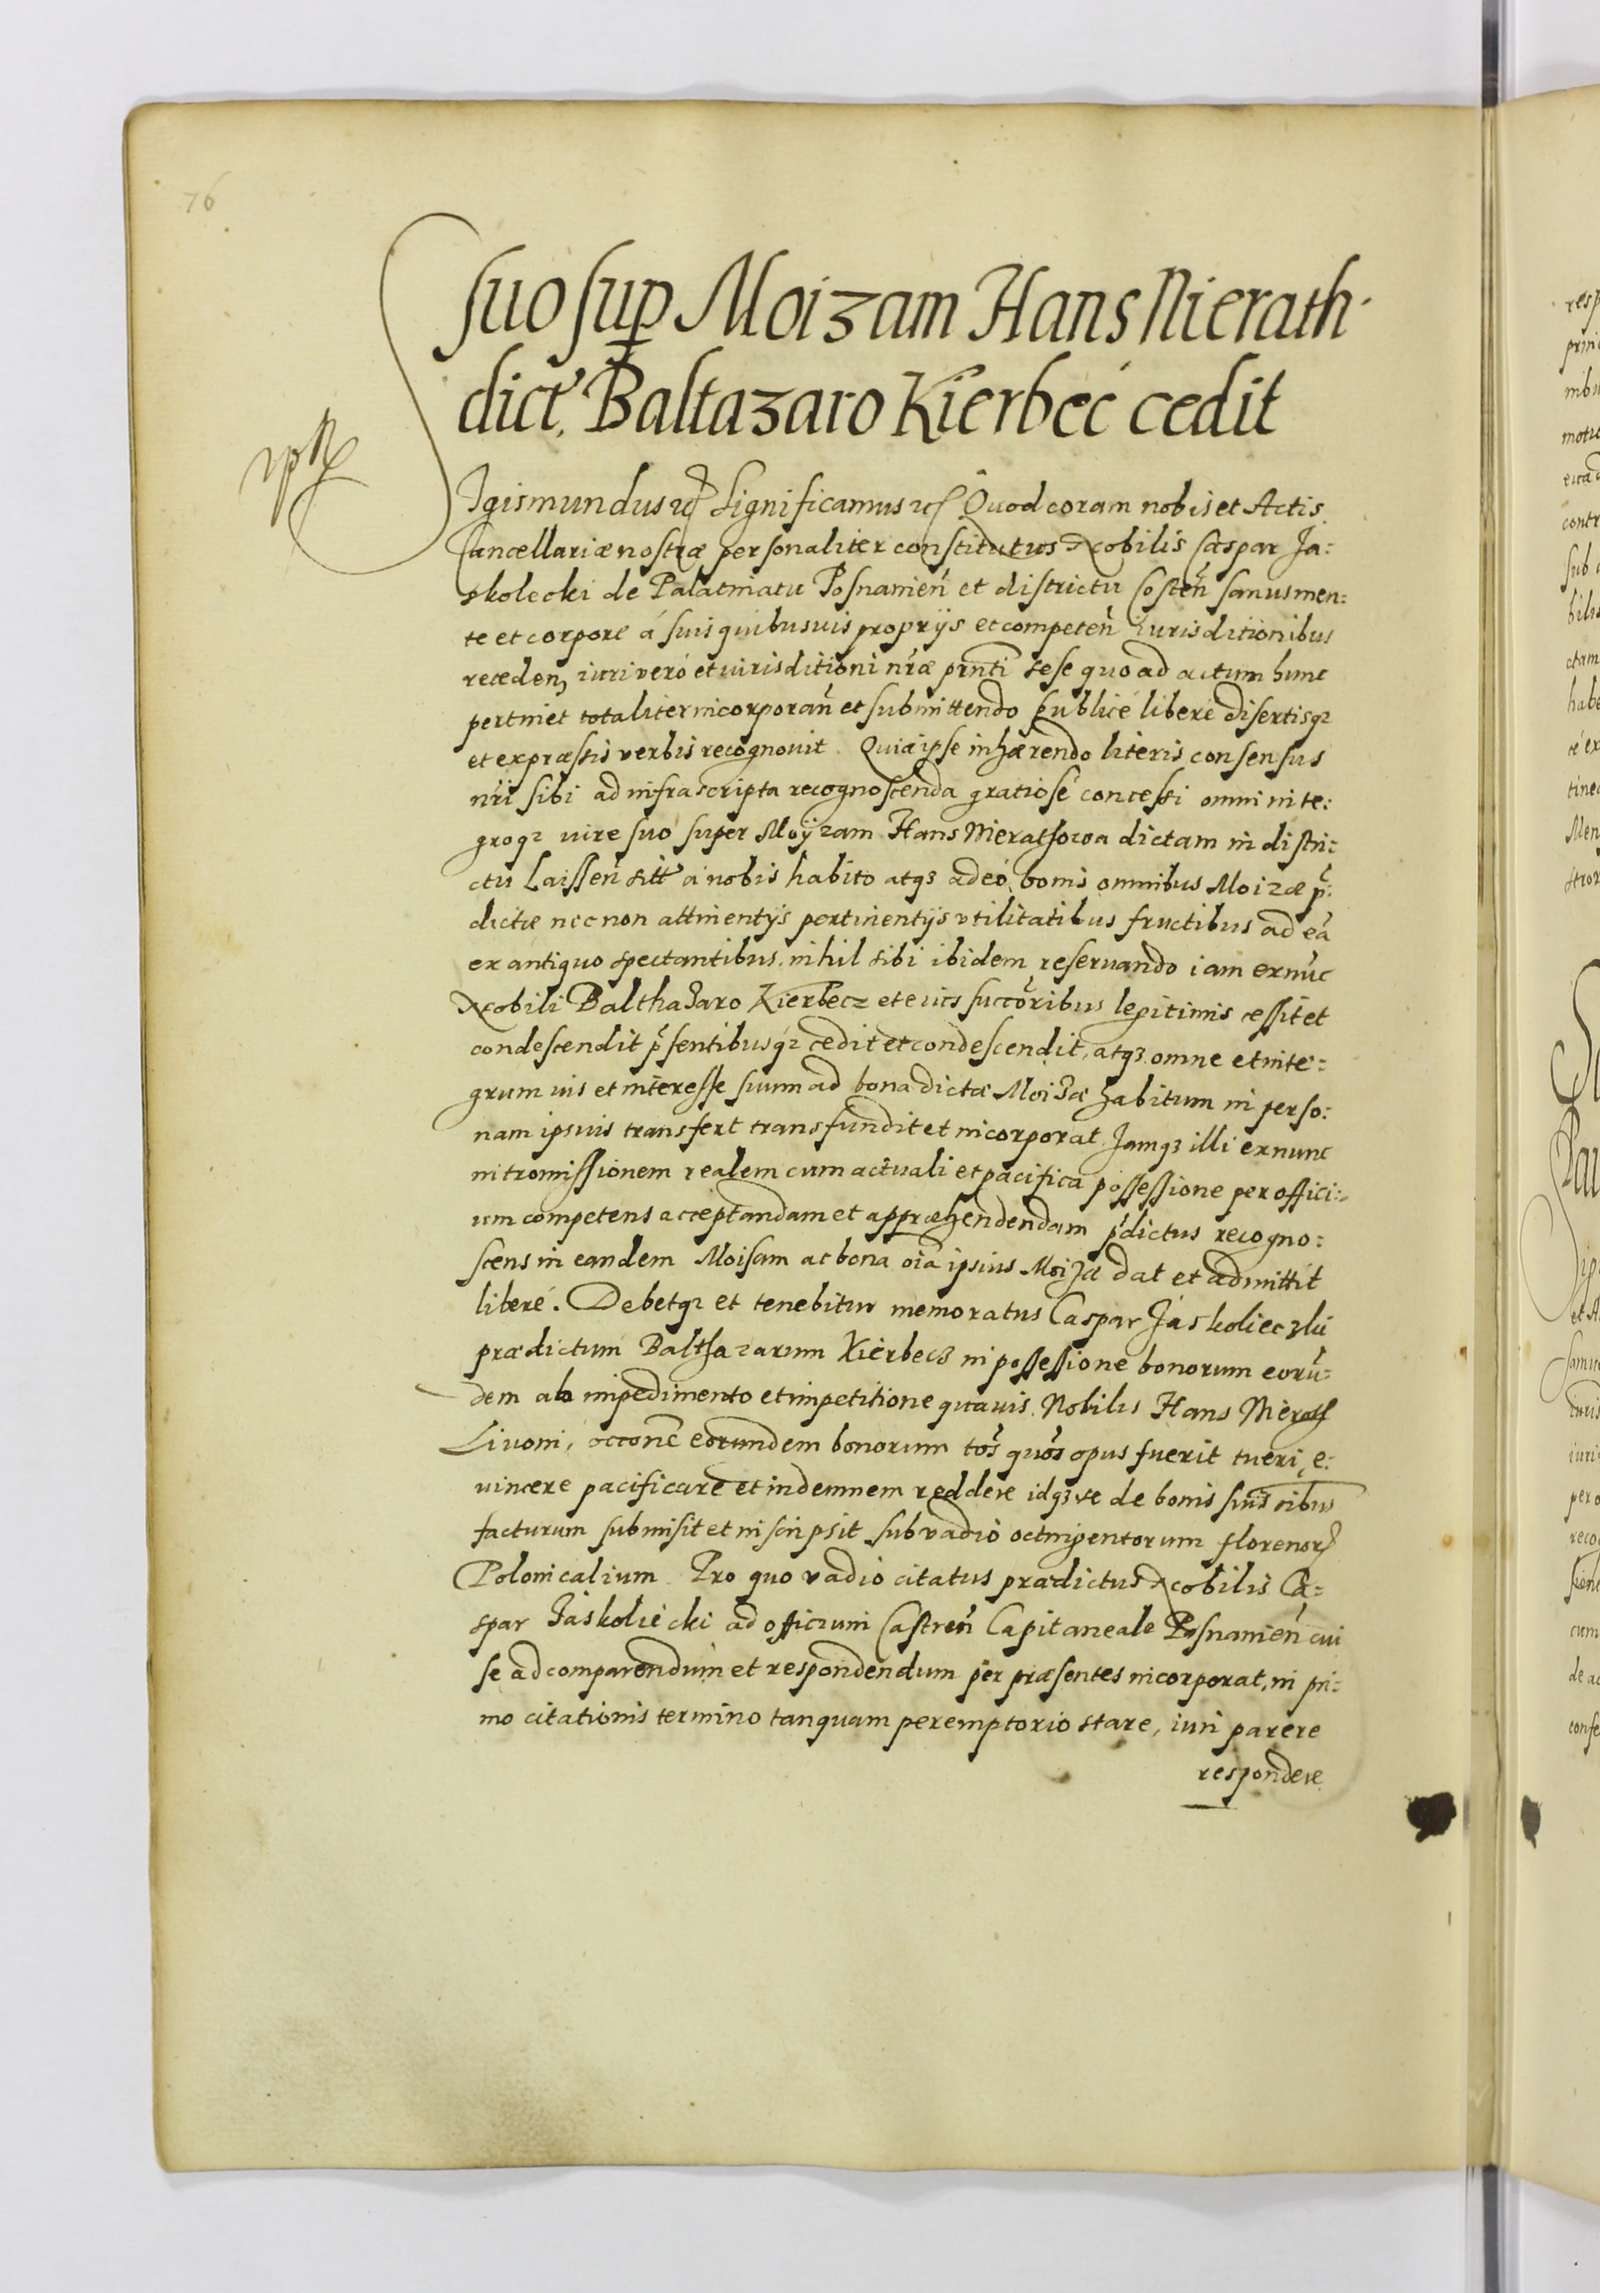 76
suo sup Moizam Hans Nierath
dict. Baltazaro Kierbec cedit
Sigismundus etc Significamus etc Quod coram nobis et Actis
Cancellariæ nostræ personaliter constitutus Nobilis Caspar Ja:
skolecki de Palatinatu Posnanien̄ et districtu Costen̄ sanus men:
te et corpore á suis quibusvis proprijs et competen̄ iurisditionibus
receden, iuri veró et iurisditioni nr̄æ prn̄ti sese quo ad actum hunc
pertinet totaliter incorporan̄ et submittendo publicé liberé disertisq3
et expræssis verbis recognovit. Quia ipse inhærendo literis consensus
nr̄i sibi ad infrascripta recognoscenda gratiosé concessi omni inte:
groq3 iure suo super Moyzam Hans Nierathowa dictam in distri:
ctu Laissen̄ sitt á nobis habito atq3 adeó bonis omnibus Moizæ p̄:
dictæ nec non attinentijs pertinentijs vtilitatibus fructibus ad eā
ex antiquo spectantibus, nihil sibi ibidem reservando iam exnūc
Nobili Balthazaro Kierbecz et eius succōribus legitimis cessit et
condescendit p̄sentibusq3 cedit et condescendit, atq3 omne et inte:
grum ius et interesse suum ad bona dictæ Moizæ habitum in perso:
nam ipsius transfert transfundit et incorporat. Jamq3 illi exnunc
intromissionem realem cum actuali et pacifica possessione per offici:
um competens acceptandam et appræhendendam p̄dictus recogno:
scens in eandem Moisam ac bona oīa ipsius Moizæ dat et admittit
liberé. Debetq3 et tenebitur memoratus Caspar Jaskolieczki
prædictum Balthazarum Kierbecz in possessione bonorum eorū:
dem ab impedimento et impetitione quavis Nobilis Hans Nierath
Livoni, occōne eorundem bonorum tōs quōs opus fuerit tueri, e:
vincere pacificare et indemnem reddere idq3 se de bonis suis oībus
facturum submisit et inscripsit sub vadio octingentorum florenor
Polonicalium. Pro quo vadio citatus prædictus Nobilis Ca:
spar Jaskoliecki ad officium Castren̄ Capitaneale Posnanien̄ cui
se ad comparendum et respondendum per præsentes incorporat, in pri:
mo citationis termino tanquam peremptorio stare, iuri parere
respondere